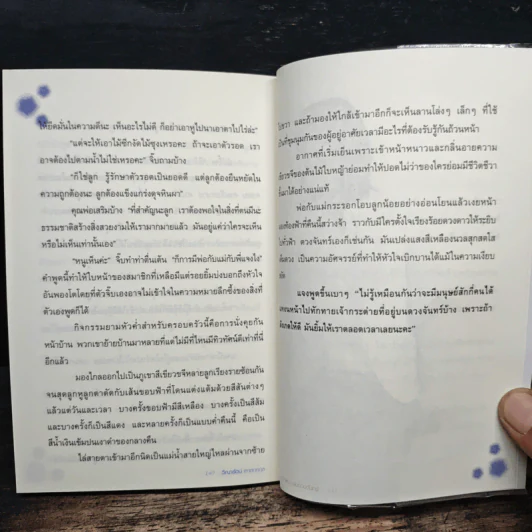 ให้ยึดมั่นในความดีนะ เห็นอะไรไม่ดี ก็อย่าเอาหูไปนาเอาตาไปไร่ล่ะ"
"แต่จะให้เอาไม้ซีกงัดไม้ซุงเหรอคะ ถ้าจะเอาตัวรอด เรา
อาจต้องไปตามน้ำไม่ใช่เหรอคะ" จิ๊บถามบ้าง
"ก็ใช่ลูก รู้รักษาตัวรอดเป็นยอดดี แต่ลูกต้องยืนหยัดใน
ความถูกต้องนะ ลูกต้องแข็งแกร่งดุจหินผา"
คุณพ่อเสริมบ้าง "ที่สำคัญนะลูก เราต้องพอใจในสิ่งที่ตนมีนะ
ธรรมชาติสร้างสิ่งสวยงามให้เรามากมายแล้ว มันอยู่แค่ว่าใครจะเห็น
หรือไม่เห็นเท่านั้นเอง"
"หนูเห็นค่ะ" จิ๊บทำท่าตื่นเต้น "ก็การมีพ่อกับแม่กับพี่แจงไง"
คำพูดนี้ทำให้ใบหน้าของสมาชิกที่เหลือมีแต่รอยยิ้มบ่งบอกถึงหัวใจ
อันพองโตโดยที่ตัวจิ๊บเองอาจไม่เข้าใจในความหมายลึกซึ้งของสิ่งที่
ตัวเองพูดก็ได้
กิจกรรมยามหัวค่ำสำหรับครอบครัวนี้คือการนั่งคุยกัน
หน้าบ้าน พวกเขาย้ายบ้านมาหลายที่แต่ไม่มีที่ไหนมีทัวทัศน์ดีเท่าที่นี่
อีกแล้ว
มองไกลออกไปเป็นภูเขาสีเขียวขจีหลายลูกเรียงรายซ้อนกัน
จนสุดลูกหูลูกตาตัดกับเส้นขอบฟ้าที่โดนแต่งแต้มด้วยสีสันต่างๆ
แล้วแต่วันและเวลา บางครั้งขอบฟ้ามีสีเหลือง บางครั้งเป็นสีส้ม
และบางครั้งก็เป็นสีแดง และหลายครั้งก็เป็นแบบค่ำคืนนี้ คือเป็น
สีน้ำเงินเข้มปนเงาดำของกลางคืน
ไล่สายตาเข้ามาอีกนิดเป็นแม่น้ำสายใหญ่ไหลผ่านจากซ้าย
ไปขวา และถ้ามองให้ใกล้เข้ามาอีกก็จะเห็นลานโล่งๆ เล็กๆ ที่ใช้
เป็นที่ชุมนุมกันของผู้อยู่อาศัยเวลามีอะไรที่ต้องรับรู้กันถ้วนหน้า
อากาศที่เริ่มเย็นเพราะเข้าหน้าหนาวและกลิ่นอายความ
ขจีของต้นไม้ใบหญ้าย่อมทำให้ปอดไม่ว่าของใครย่อมมีชีวิตชีวา
ขึ้นมาได้อย่างแน่แท้
พ่อกับแม่กระชอกโอบลูกน้อยอย่างอ่อนโยนแล้วเงยหน้า
ท้องฟ้าที่คืนนี้สว่างจ้า ราวกับมีใครตั้งใจเรียงร้อยดวงดาวให้ระยิบ
ทั่วฟ้า ดวงจันทร์เองก็เช่นกัน มันเปล่งแสงสีเหลืองนวลสุกสดใส
เป็นความอัศจรรย์ที่ทำให้หัวใจเบิกบานได้แม้ในความเงียบ
แจงพูดขึ้นเบาๆ "ไม่รู้เหมือนกันว่าจะมีมนุษย์สักกี่คนได้
หน้าไปทักทายเจ้ากระต่ายที่อยู่บนดวงจันทร์บ้าง เพราะถ้า
ได้ดี มันยิ้มให้เราตลอดเวลาเลยนะคะ"